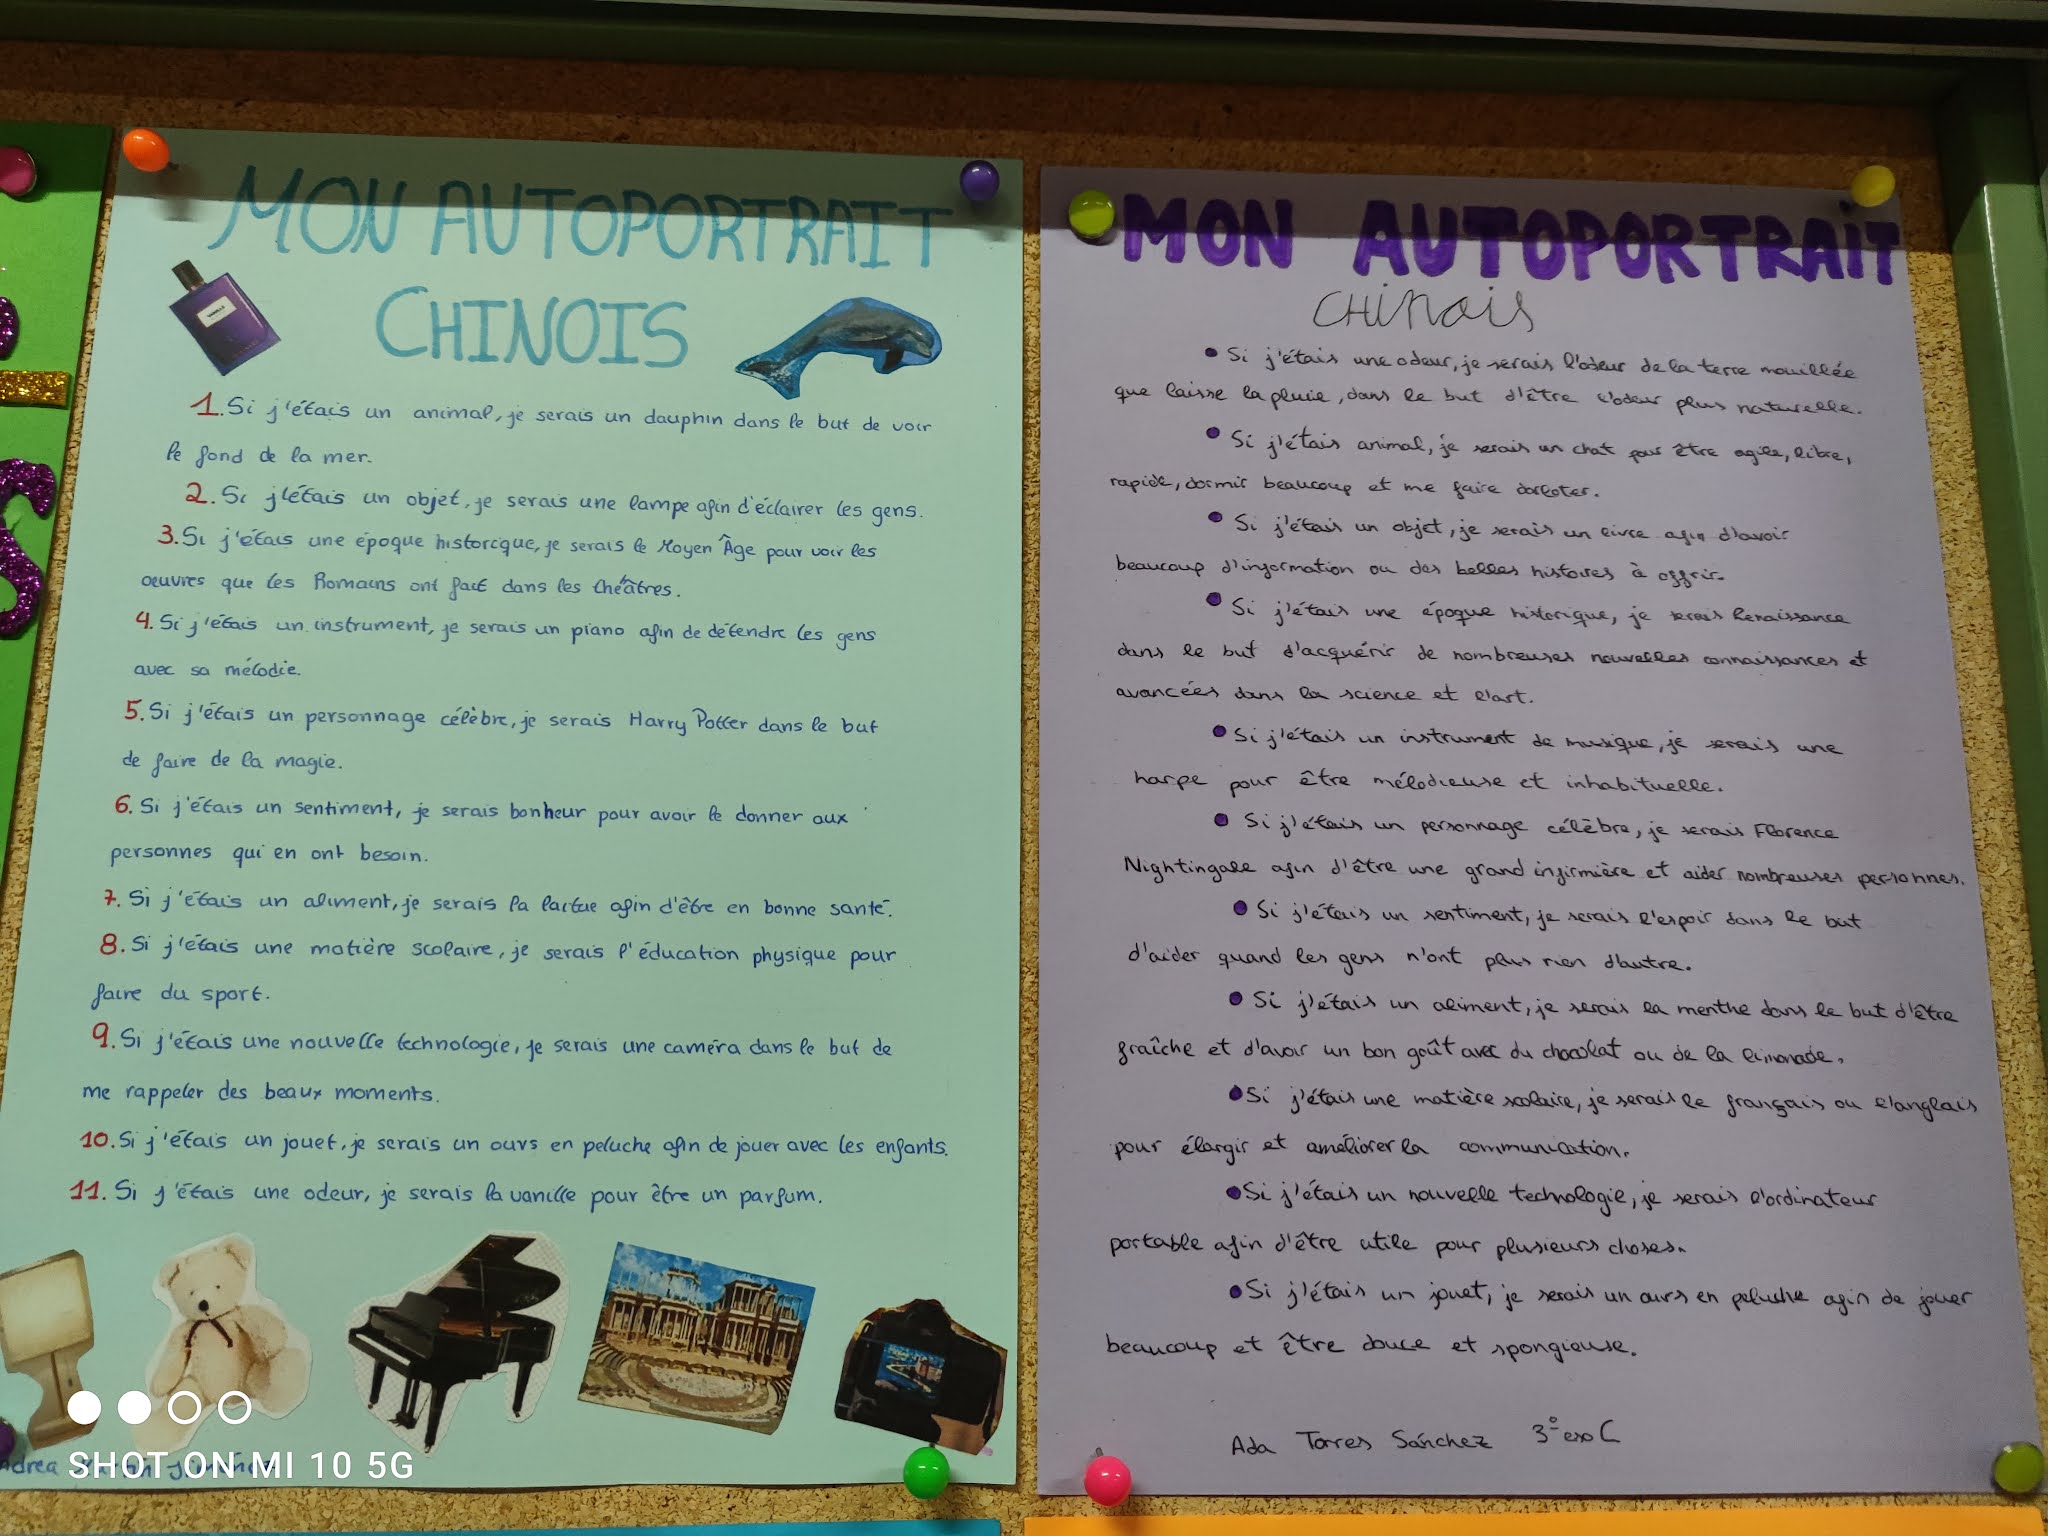 MON AUTOPORTRAIT
CHINOIS
1. Si j'étais un animal, je serais un dauphin dans le but de voir
le fond de la mer.
2. Si j'étais un objet, je serais une lampe afin d'éclairer les gens.
3. Si j'étais une époque historique, je serais le Moyen Âge pour voir les
œuvres que les Romains ont fact dans les théâtres.
4. Si j'étais un instrument, je serais un piano afin de détendre les gens
avec sa mélodie.
5. Si j'étais un personnage célèbre, je serais Harry Potter dans le but
de faire de la magie.
6. Si j'étais un sentiment, je serais bonheur pour avoir le donner aux
personnes qui en ont besoin.
7. Si j'étais un aliment, je serais la lactue afin d'être en bonne santé.
8. Si j'étais une matière scolaire, je serais l'éducation physique pour
faire du sport.
9. Si j'étais une nouvelle technologie, je serais une caméra dans le but de
me rappeler des beaux moments.
10. Si j'étais un jouet, je serais un ours en peluche afin de jouer avec les enfants.
11. Si j'étais une odeur, je serais la vanille pour être un parfum.
SHOT ON MI 10 5G
MON AUTOPORTRAIT
CHinois
• Si j'étais une odeur, je serais l'odeur de la terre mouillée
que laisse la pluie, dans le but d'être l'odeur plus naturelle.
• Si j'étais animal, je serais un chat pour être agile, libre,
rapide, dormir beaucoup et me faire dorloter.
• Si j'étais un objet, je serais un livre afin d'avoir
beaucoup d'information ou des belles histoires à offrir.
• Si j'étais une époque historique, je serais Renaissance
dans le but d'acquérir de nombreuses nouvelles connaissances et
avancées dans la science et l'art.
• Si j'étais un instrument de musique, je serais une
harpe pour être mélodieuse et inhabituelle.
• Si j'étais un personnage célèbre, je serais Florence
Nightingale afin d'être une grand infirmière et aider nombreuses personnes.
• Si j'étais un sentiment, je serais l'espoir dans le but
d'aider quand les gens n'ont plus rien d'autre.
• Si j'étais un aliment, je serais la menthe dans le but d'être
fraîche et d'avoir un bon goût avec du chocolat ou de la limonade.
• Si j'étais une matière scolaire, je serais le français ou l'anglais
pour élargir et améliorer la communication.
• Si j'étais un nouvelle technologie, je serais l'ordinateur
portable afin d'être utile pour plusieurs choses.
• Si j'étais un jouet, je serais un ours en peluche afin de jouer
beaucoup et être douce et spongieuse.
Ada Torres Sánchez 3º eso C